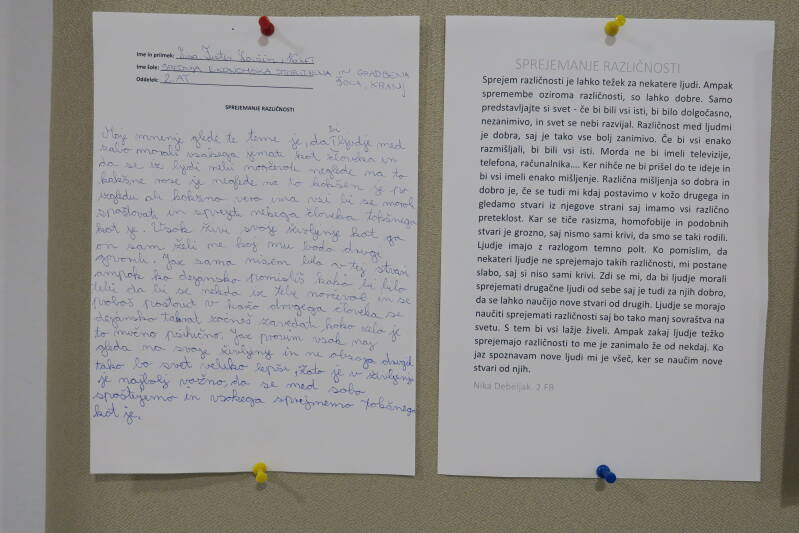 Ime in priimek:
Ime šole: SREDNJA EKONOMSKA STORITVENA IN GRADBENA
ŠOLA, KRANJ
Oddelek: 2. AT
SPREJEMANJE RAZLIČNOSTI
Moje mnenje glede te teme je, da bi ljudje med
sabo morali vsakega jemati kot človeka in
da se iz ljudi nebi norčevali neglede na to
kakšne rase je neglede na to kakšen je po
izgledu ali kakšno vero ima vsi bi se morali
spoštovati in sprejeti nekega človeka takšnega
kot je. Vsak živi svoje življenje kot ga
on sam želi ne kaj mu bodo drugi
govorili. Jaz sama nisem bila v tej stvari
ampak ko dejansko pomisliš kako bi bilo
tebi da bi se nekdo iz tebe norčeval in se
probaš postavit v kožo drugega človeka se
dejansko takrat začneš zavedat kako zelo je
to mučno psihično. Jaz prosim vsak naj
gleda na svoje življenje in ne obsoja drugih
tako bo svet veliko lepši, zato je v življenju
je najbolj važno, da se med sabo
spoštujemo in vsakega sprejmemo takšnega
kot je.
SPREJEMANJE RAZLIČNOSTI
Sprejem različnosti je lahko težek za nekatere ljudi. Ampak
spremembe oziroma različnosti, so lahko dobre. Samo
predstavljajte si svet - če bi bili vsi isti, bi bilo dolgočasno,
nezanimivo, in svet se nebi razvijal. Različnost med ljudmi
je dobra, saj je tako vse bolj zanimivo. Če bi vsi enako
razmišljali, bi bili vsi isti. Morda ne bi imeli televizije,
telefona, računalnika.... Ker nihče ne bi prišel do te ideje in
bi vsi imeli enako mišljenje. Različna mišljenja so dobra in
dobro je, če se tudi mi kdaj postavimo v kožo drugega in
gledamo stvari iz njegove strani saj imamo vsi različno
preteklost. Kar se tiče rasizma, homofobije in podobnih
stvari je grozno, saj nismo sami krivi, da smo se taki rodili.
Ljudje imajo z razlogom temno polt. Ko pomislim, da
nekateri ljudje ne sprejemajo takih različnosti, mi postane
slabo, saj si niso sami krivi. Zdi se mi, da bi ljudje morali
sprejemati drugačne ljudi od sebe saj je tudi za njih dobro,
da se lahko naučijo nove stvari od drugih. Ljudje se morajo
naučiti sprejemati različnosti saj bo tako manj sovraštva na
svetu. S tem bi vsi lažje živeli. Ampak zakaj ljudje težko
sprejemajo različnosti to me je zanimalo že od nekdaj. Ko
jaz spoznavam nove ljudi mi je všeč, ker se naučim nove
stvari od njih.
Nika Debeljak. 2.FB